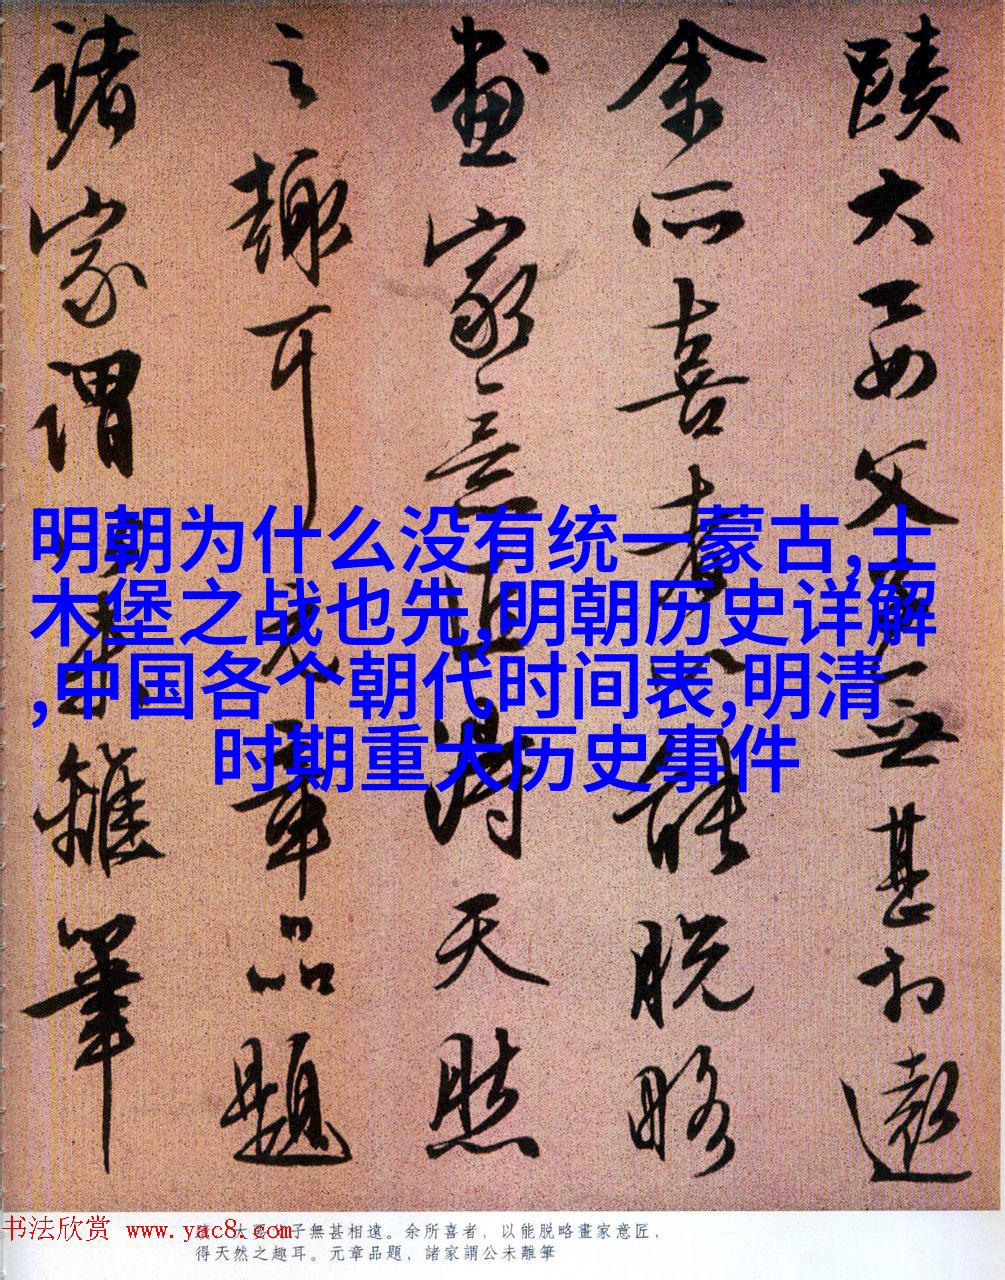 蹟大要父子無甚相遠
余所喜者以能脱略
畫家意匠得天然
之趣耳元章品題
諸家謂公未離筆
明朝为什么没有统一蒙古,土
木堡之战也先,明朝历史详解
,中国各个朝代时间表,明清
时期重大历史事件
书法欣赏 www.yac8.com
大要父子無甚相遠。余所喜者，以能脱略畫家意匠，
得天然之趣耳。元章品題，諸家謂公未離筆